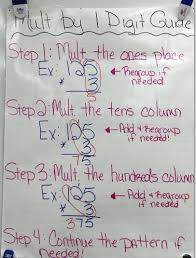 Mult by 1 Digit Guide
Step 1: Mult the ones place
Ex: 125
* 3
5
← Regroup if needed!
Step 2: Mult. the tens column
Ex: 125
* 3
75
← Add & Regroup if needed!
Step 3: Mult. the hundreds column
Ex: 125
* 3
375
← Add & Regroup if needed
Step 4: Continue the pattern if
needed!